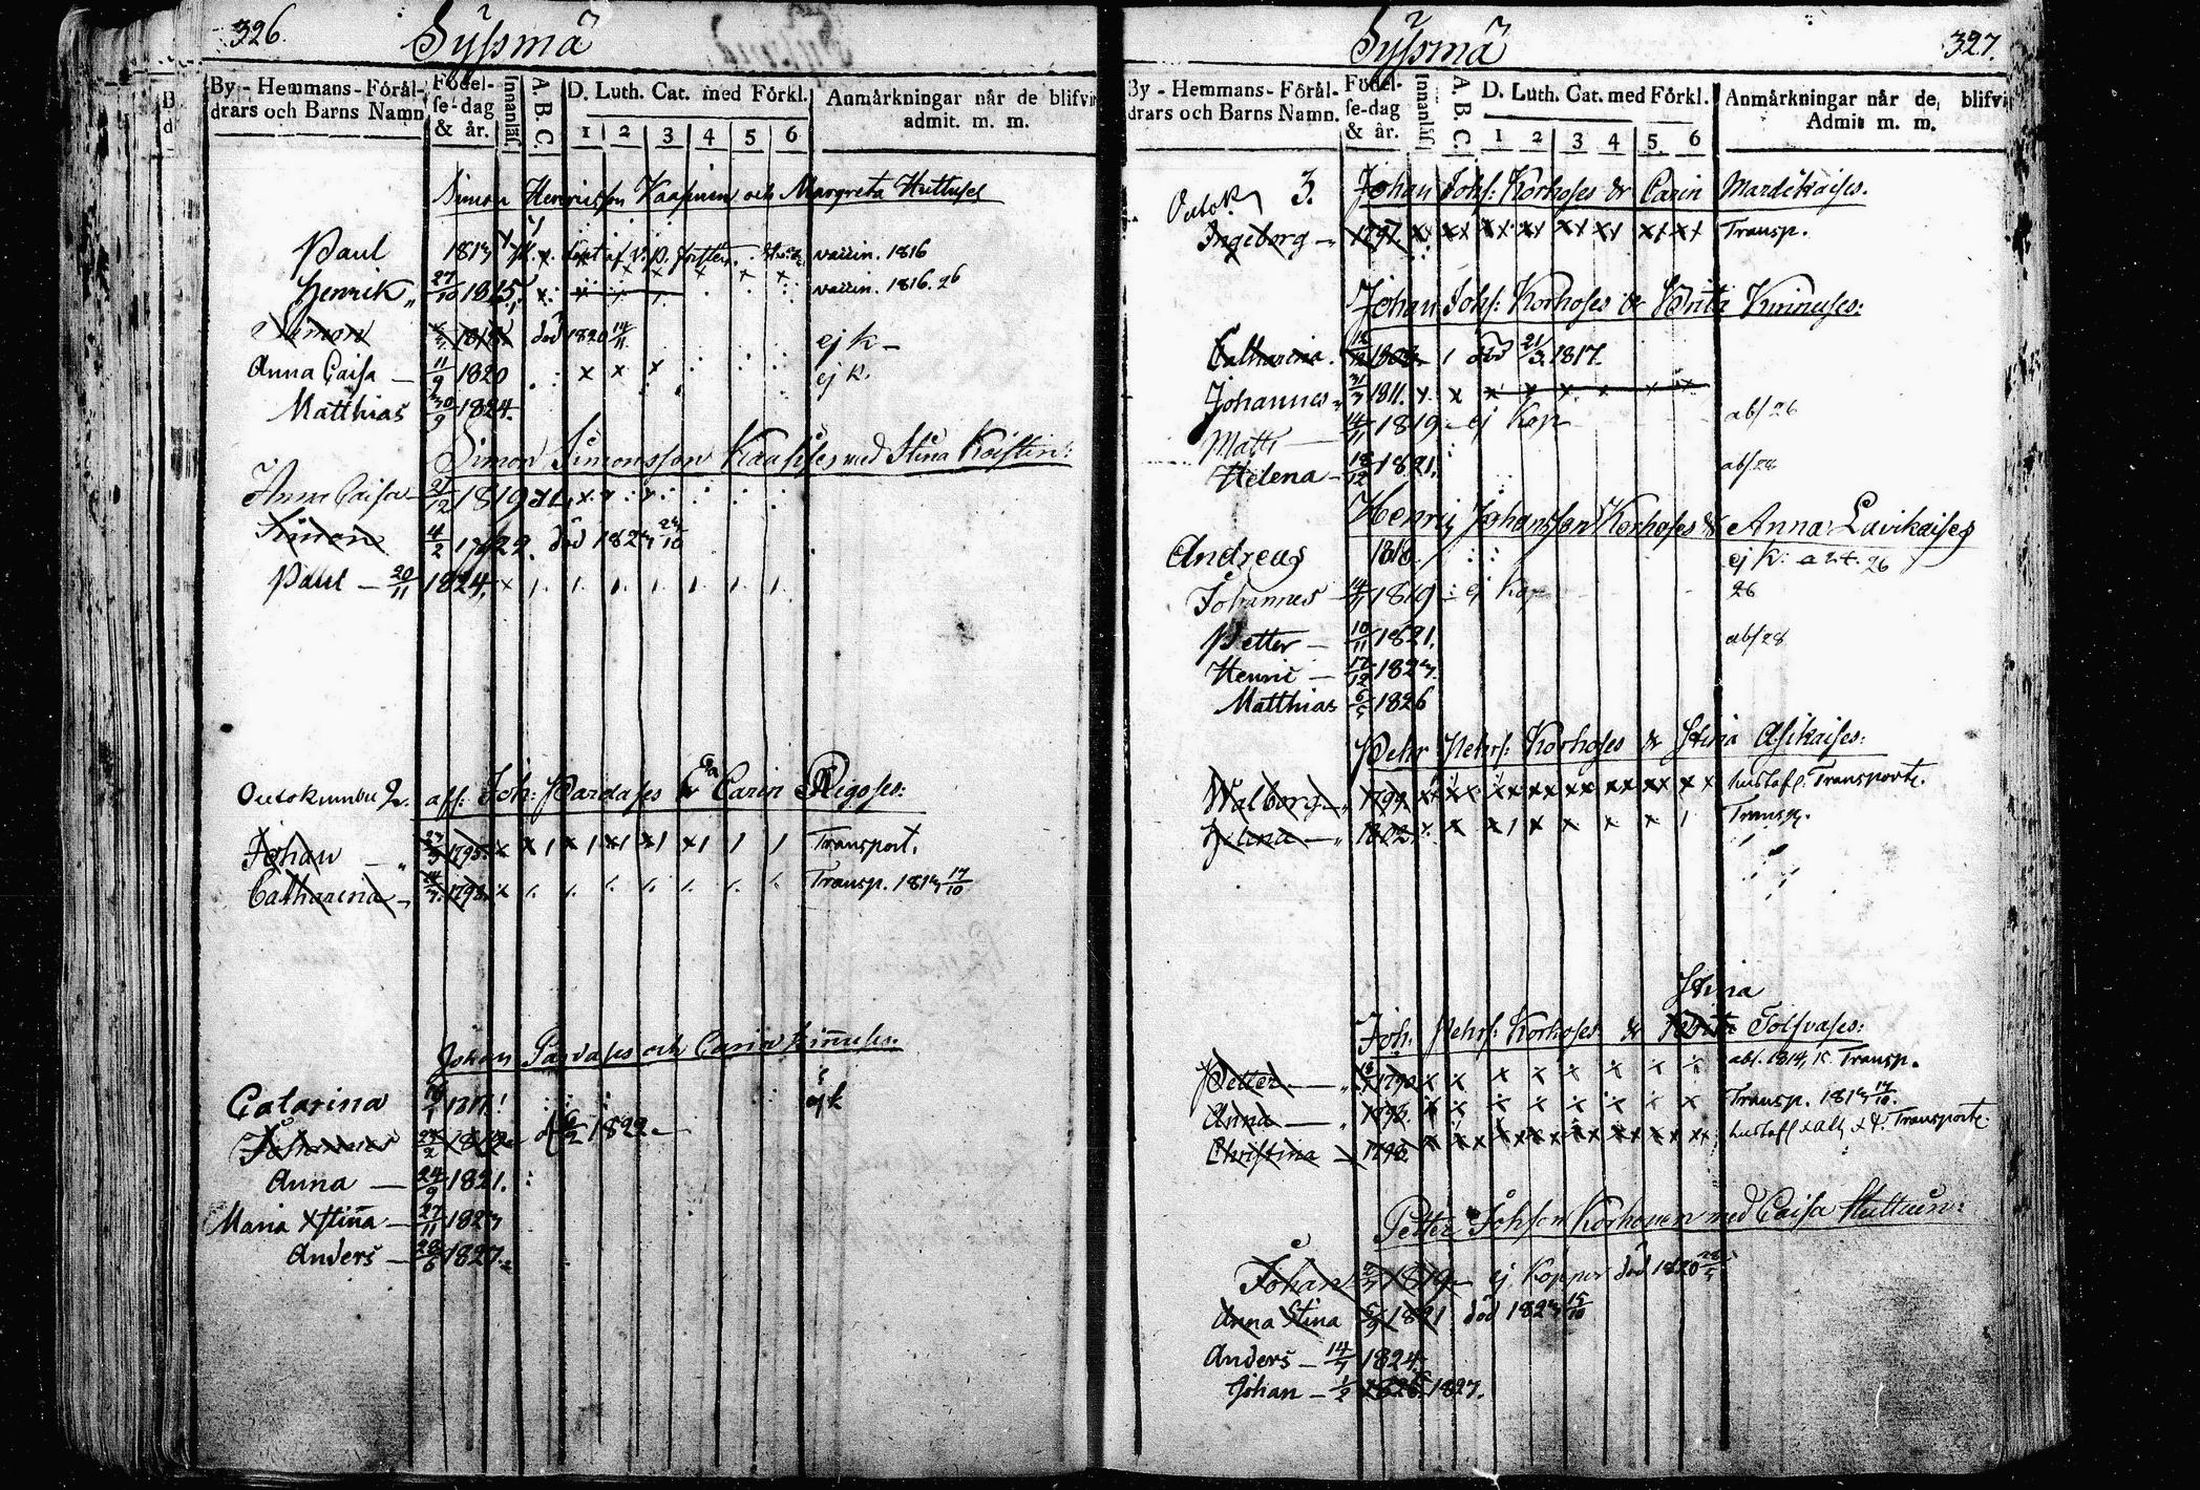 326.
Syssmä
By - Hemmans - Förål-
drars och Barns Namn
Födel-
se-dag
& år.
Innanläs.
A. B. C.
D. Luth. Cat. med Förkl.
1 2 3 4 5 6
Anmärkningar når de blifvi
admit. m. m.
Simon Henricsson Kaapinen och Margreta Huttuses
Paul 1813 vaccin. 1816
Henrik 27/10 1815 vaccin. 1816. 26
Simon 1818 död 1820 14/11 ej k
Anna Caisa 11/9 1820 x x x ej k.
Matthias 30/9 1824.
Simon Simonsson Kaasises med Stina Koistin:
Anna Caisa 21/12 1819
Simon 4/2 1822. död 1823
Paul 20/11 1824.
Outokumbu 2. aff: Joh: Pardases & Carin Rigoses:
Johan 1795. Transport.
Catharina 1798. Transp. 1813 17/10
Johan Parvases och Carin Kinnuses.
Catarina 1817 ej k
Johannes 1819 d 6/2 1822
Anna 24/9 1821.
Maria Xstina 27/11 1823
Anders 1827.
Syssmä
327.
By - Hemmans - Förål-
drars och Barns Namn.
Födel-
se-dag
& år.
Innanläs.
A. B. C.
D. Luth. Cat. med Förkl.
1 2 3 4 5 6
Anmärkningar når de, blifvi
Admit m. m.
Outok 3. Johan Johs: Korhoses & Carin Mardikaises.
Ingeborg 1797. Transp.
Johan Johs: Korhoses & Brita Kinnuses:
Catharina 1808 död 21/3 1817.
Johannes 1811.
Matts 14/11 1819 ej kop abs 26
Helena 18/12 1821. abs 28
Henric Johansson Korhoses & Anna Lavikaises
Andreas 1818. ej k: a 24. 26
Johannes 1819 ej kop 26
Petter 10/11 1821. abs 28
Henric 17/12 1823.
Matthias 6/5 1826
Pehr Pehrs: Korhoses & Stina Asikaises:
Walborg 1799. Transporte.
Helena 1802. Transp.
Stina
Joh. Pehrs: Korhoses & Brita Tolfvases:
Petter 1790 abs. 1814, 15 Transp.
Anna 1796. Transp. 1813 17/10.
Christina 1798 Transporte.
Petter Johsson Korhonen med Caisa Huttuin:
Johan 1819 ej koppor död 1820
Anna Stina 1821 död 1823 15/10
Anders 14/7 1824.
Johan 1/2 1826. 1827.